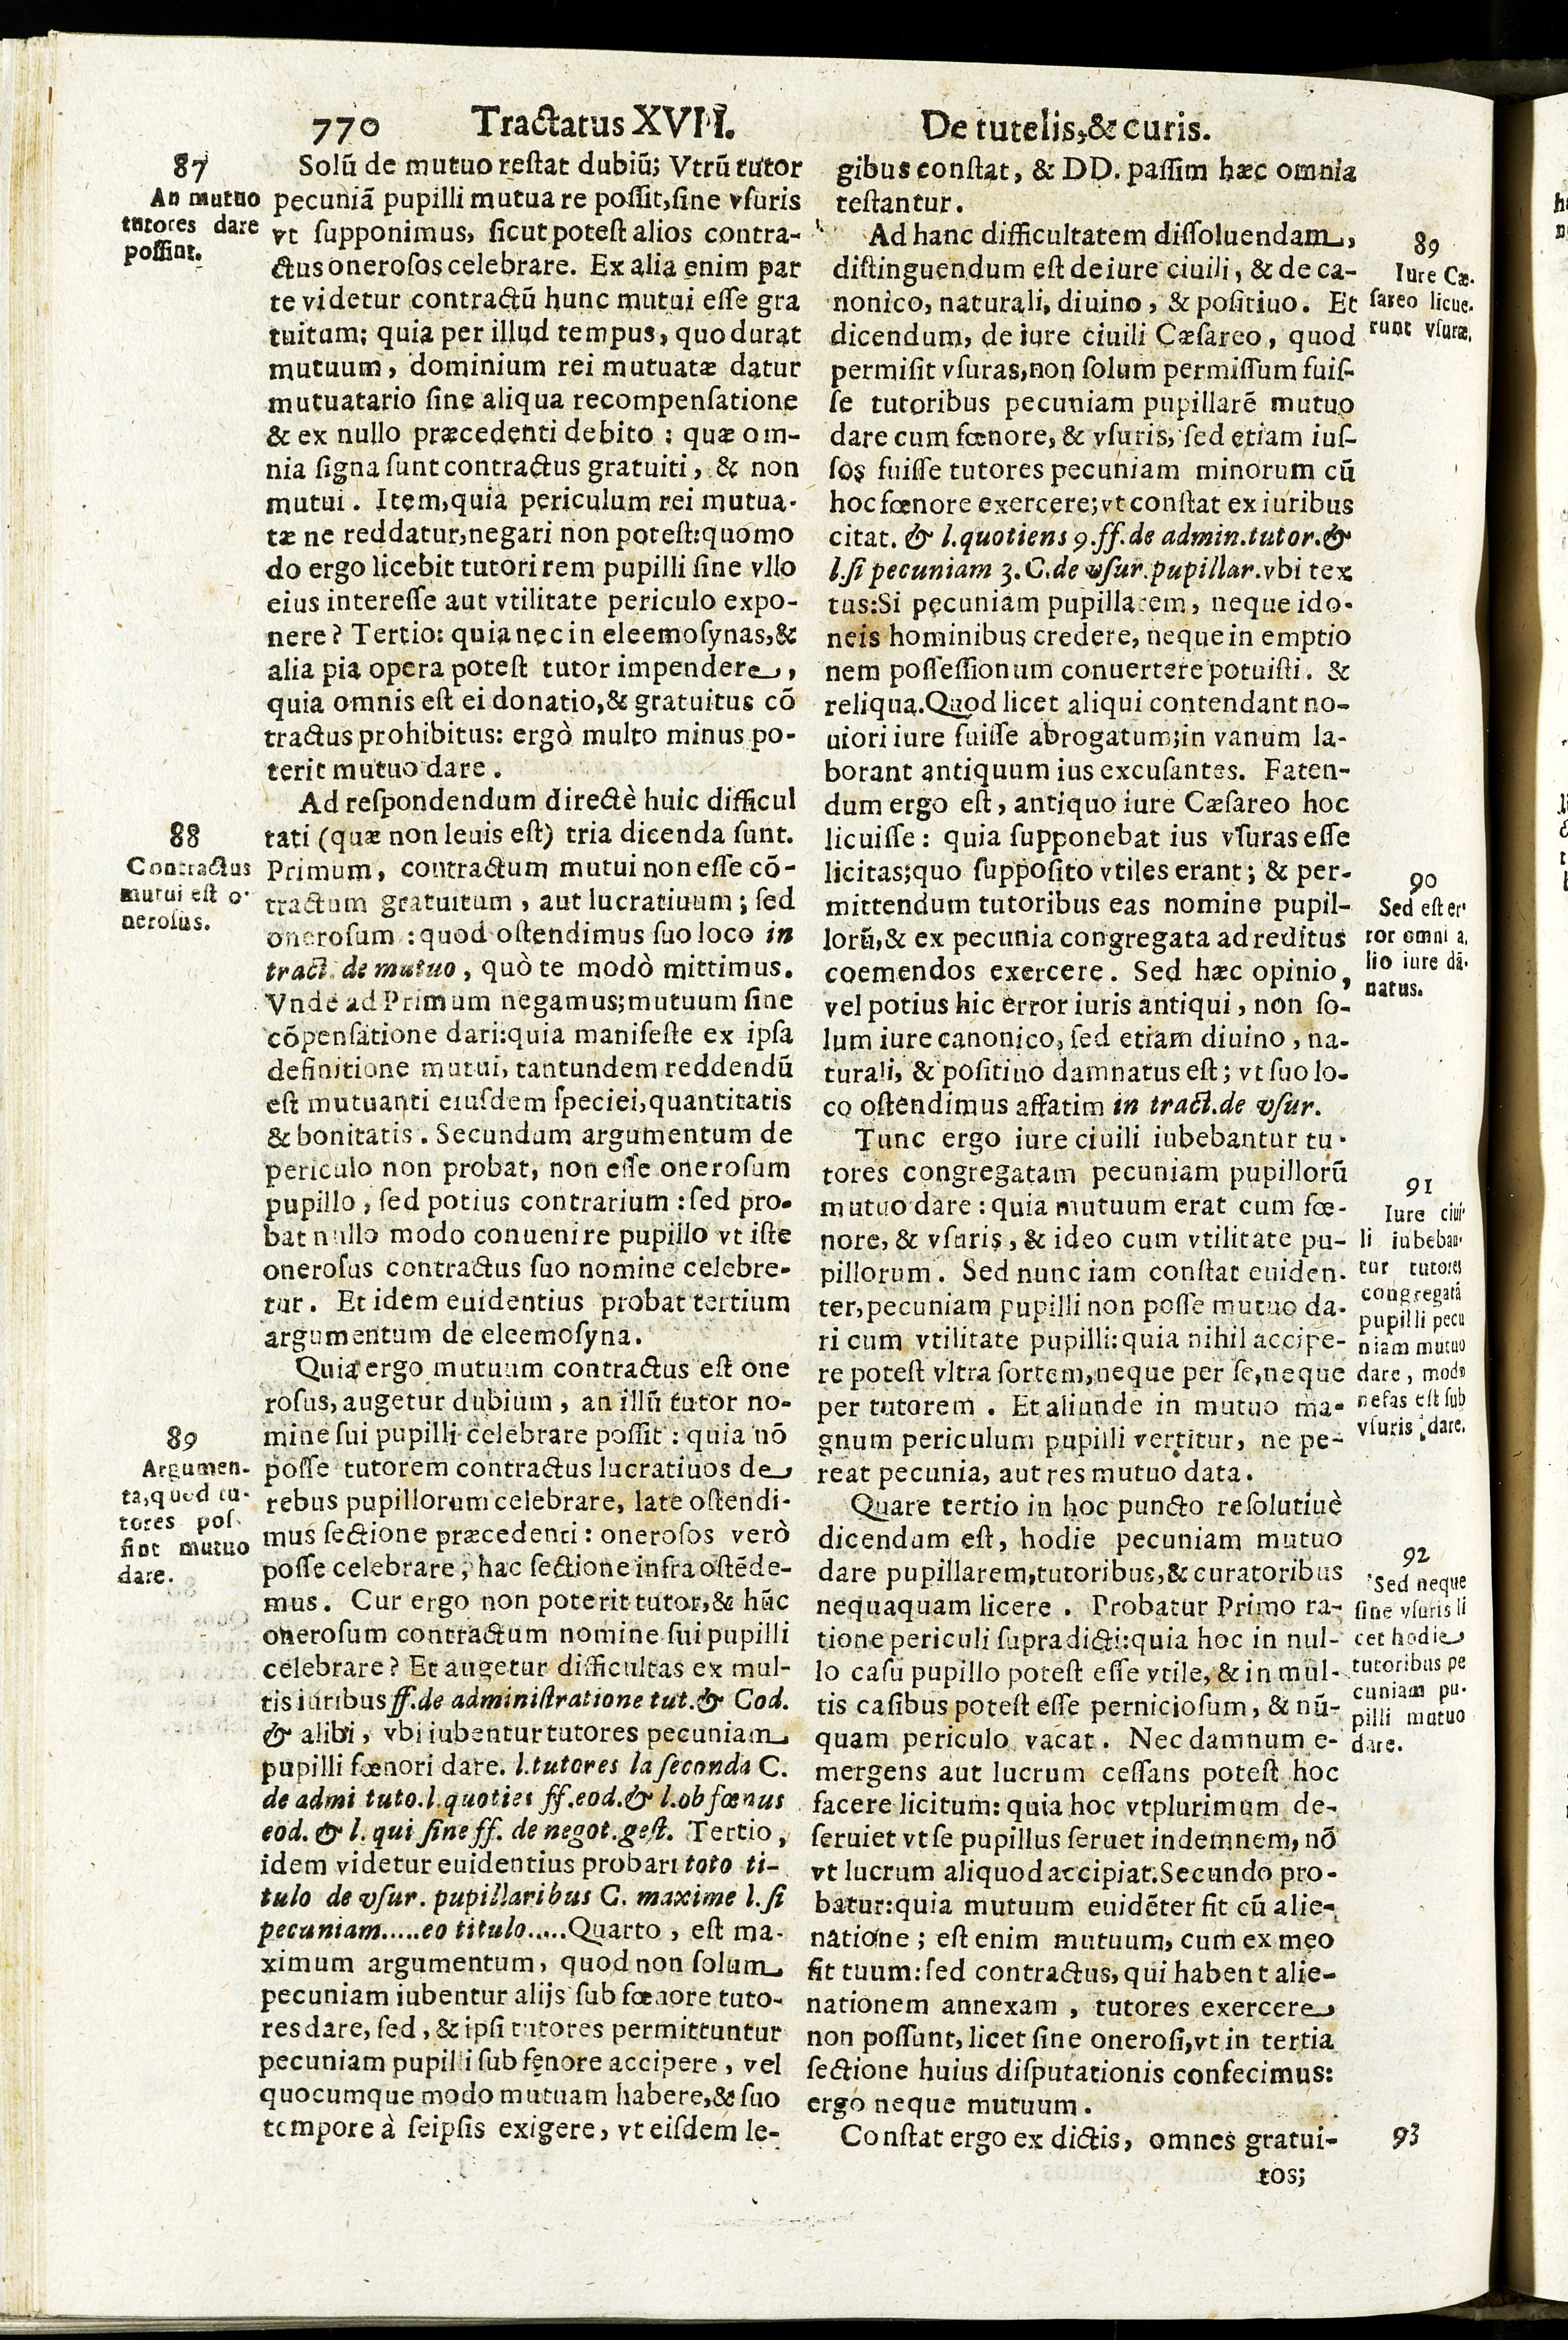 770 Tractatus XVII. De tutelis, & curis.
87
An mutuo
tutores dare
possint.
Solũ de mutuo restat dubiũ; Vtrũ tutor
pecuniã pupilli mutua re possit, sine vsuris
vt supponimus, sicut potest alios contra-
ctus onerosos celebrare. Ex alia enim par
te videtur contractũ hunc mutui esse gra
tuitum: quia per illud tempus, quo durat
mutuum, dominium rei mutuatæ datur
mutuatario sine aliqua recompensatione
& ex nullo præcedenti debito: quæ om-
nia signa sunt contractus gratuiti, & non
mutui. Item, quia periculum rei mutua-
tæ ne reddatur, negari non potest: quomo
do ergo licebit tutori rem pupilli sine vllo
eius interesse aut vtilitate periculo expo-
nere? Tertio: quia nec in eleemosynas, &
alia pia opera potest tutor impendere,
quia omnis est ei donatio, & gratuitus cõ
tractus prohibitus: ergò multo minus po-
terit mutuo dare.
88
Contractus
mutui est o-
nerosus.
Ad respondendum directè huic difficul
tati (quæ non leuis est) tria dicenda sunt.
Primum, contractum mutui non esse cõ-
tractum gratuitum, aut lucratiuum; sed
onerosum: quod ostendimus suo loco in
tract. de mutuo, quò te modò mittimus.
Vnde ad Primum negamus; mutuum sine
cõpensatione dari: quia manifeste ex ipsa
definitione mutui, tantundem reddendũ
est mutuanti eiusdem speciei, quantitatis
& bonitatis. Secundum argumentum de
periculo non probat, non esse onerosum
pupillo, sed potius contrarium: sed pro-
bat nullo modo conuenire pupillo vt iste
onerosus contractus suo nomine celebre-
tur. Et idem euidentius probat tertium
argumentum de eleemosyna.
89
Argumen-
ta, quod tu-
tores pos-
sint mutuo
dare.
Quia ergo mutuum contractus est one
rosus, augetur dubium, an illũ tutor no-
mine sui pupilli celebrare possit: quia nõ
posse tutorem contractus lucratiuos de
rebus pupillorum celebrare, late ostendi-
mus sectione præcedenti: onerosos verò
posse celebrare, hac sectione infra ostẽde-
mus. Cur ergo non poterit tutor, & hũc
onerosum contractum nomine sui pupilli
celebrare? Et augetur difficultas ex mul-
tis iuribus ff. de administratione tut. & Cod.
& alibi, vbi iubentur tutores pecuniam
pupilli fœnori dare. l. tutores la seconda C.
de admi tuto. l. quoties ff. eod. & l. ob fœnus
eod. & l. qui sine ff. de negot. gest. Tertio,
idem videtur euidentius probari toto ti-
tulo de vsur. pupillaribus C. maxime l. si
pecuniam.....eo titulo.....Quarto, est ma-
ximum argumentum, quod non solum
pecuniam iubentur alijs sub fœnore tuto-
res dare, sed, & ipsi tutores permittuntur
pecuniam pupilli sub fęnore accipere, vel
quocumque modo mutuam habere, & suo
tempore à seipsis exigere, vt eisdem le-
gibus constat, & DD. passim hæc omnia
testantur.
89
Iure Cæ-
sareo licue-
runt vsuræ.
Ad hanc difficultatem dissoluendam,
distinguendum est de iure ciuili, & de ca-
nonico, naturali, diuino, & positiuo. Et
dicendum, de iure ciuili Cæsareo, quod
permisit vsuras, non solum permissum fuis-
se tutoribus pecuniam pupillarẽ mutuo
dare cum fœnore, & vsuris, sed etiam ius-
sos fuisse tutores pecuniam minorum cũ
hoc fœnore exercere; vt constat ex iuribus
citat. & l. quotiens 9. ff. de admin. tutor. &
l. si pecuniam 3. C. de vsur. pupillar. vbi tex
tus: Si pecuniam pupillarem, neque ido-
neis hominibus credere, neque in emptio
nem possessionum conuertere potuisti. &
reliqua. Quod licet aliqui contendant no-
uiori iure fuisse abrogatum; in vanum la-
borant antiquum ius excusantes. Faten-
dum ergo est, antiquo iure Cæsareo hoc
licuisse: quia supponebat ius vsuras esse
licitas; quo supposito vtiles erant; & per-
mittendum tutoribus eas nomine pupil-
lorũ, & ex pecunia congregata ad reditus
coemendos exercere. Sed hæc opinio,
vel potius hic error iuris antiqui, non so-
lum iure canonico, sed etiam diuino, na-
turali, & positiuo damnatus est; vt suo lo-
co ostendimus affatim in tract. de vsur.
90
Sed est er-
ror omni a-
lio iure dã-
natus.
Tunc ergo iure ciuili iubebantur tu-
tores congregatam pecuniam pupillorũ
mutuo dare: quia mutuum erat cum fœ-
nore, & vsuris, & ideo cum vtilitate pu-
pillorum. Sed nunc iam constat euiden-
ter, pecuniam pupilli non posse mutuo da-
ri cum vtilitate pupilli: quia nihil accipe-
re potest vltra sortem, neque per se, neque
per tutorem. Et aliunde in mutuo ma-
gnum periculum pupilli vertitur, ne pe-
reat pecunia, aut res mutuo data.
91
Iure ciui-
li iubeban-
tur tutores
congregatã
pupilli pecu
niam mutuo
dare, modo
nefas est sub
vsuris dare.
Quare tertio in hoc puncto resolutiuè
dicendum est, hodie pecuniam mutuo
dare pupillarem, tutoribus, & curatoribus
nequaquam licere. Probatur Primo ra-
tione periculi supradicti: quia hoc in nul-
lo casu pupillo potest esse vtile, & in mul-
tis casibus potest esse perniciosum, & nũ-
quam periculo vacat. Nec damnum e-
mergens aut lucrum cessans potest hoc
facere licitum: quia hoc vtplurimum de-
seruiet vt se pupillus seruet indemnem, nõ
vt lucrum aliquod accipiat. Secundo pro-
batur: quia mutuum euidẽter fit cũ alie-
natione; est enim mutuum, cum ex meo
fit tuum: sed contractus, qui habent alie-
nationem annexam, tutores exercere
non possunt, licet sine onerosi, vt in tertia
sectione huius disputationis confecimus:
ergo neque mutuum.
92
Sed neque
sine vsuris li
cet hodie
tutoribus pe
cuniam pu-
pilli mutuo
dare.
93
Constat ergo ex dictis, omnes gratui-
tos;